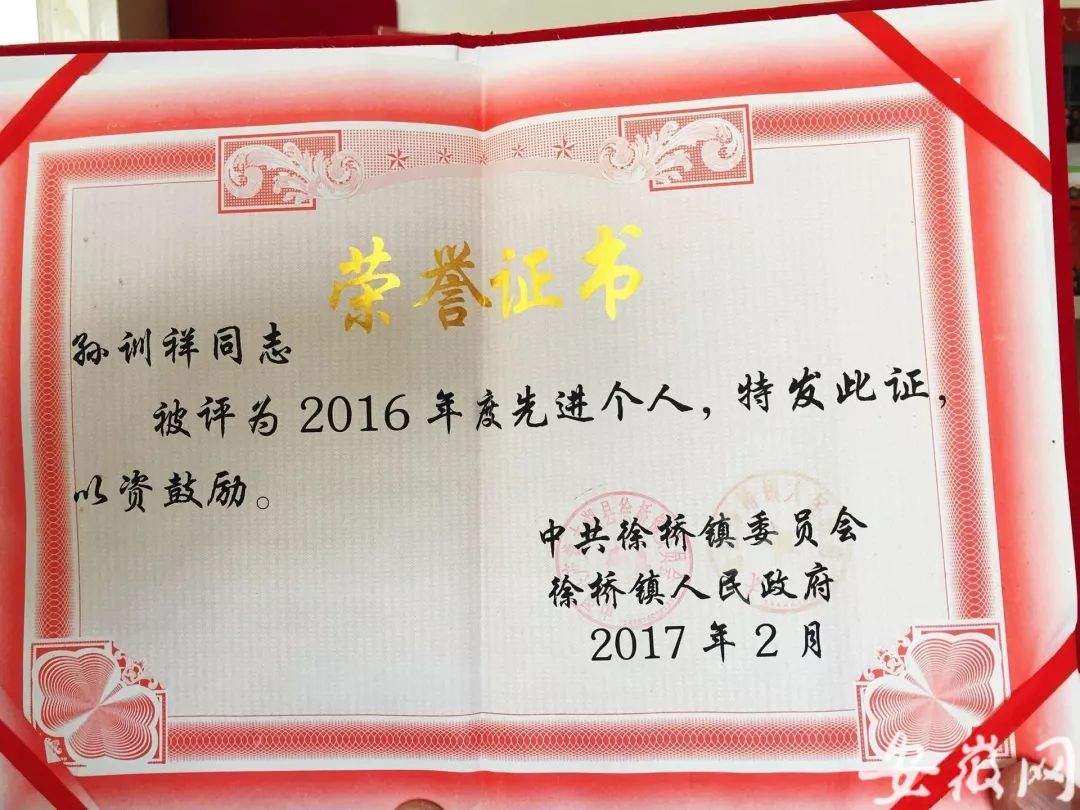 荣誉证书
孙训祥同志
被评为2016年度先进个人，特发此证，
以资鼓励。
中共徐桥镇委员会
徐桥镇人民政府
2017年2月
安徽网